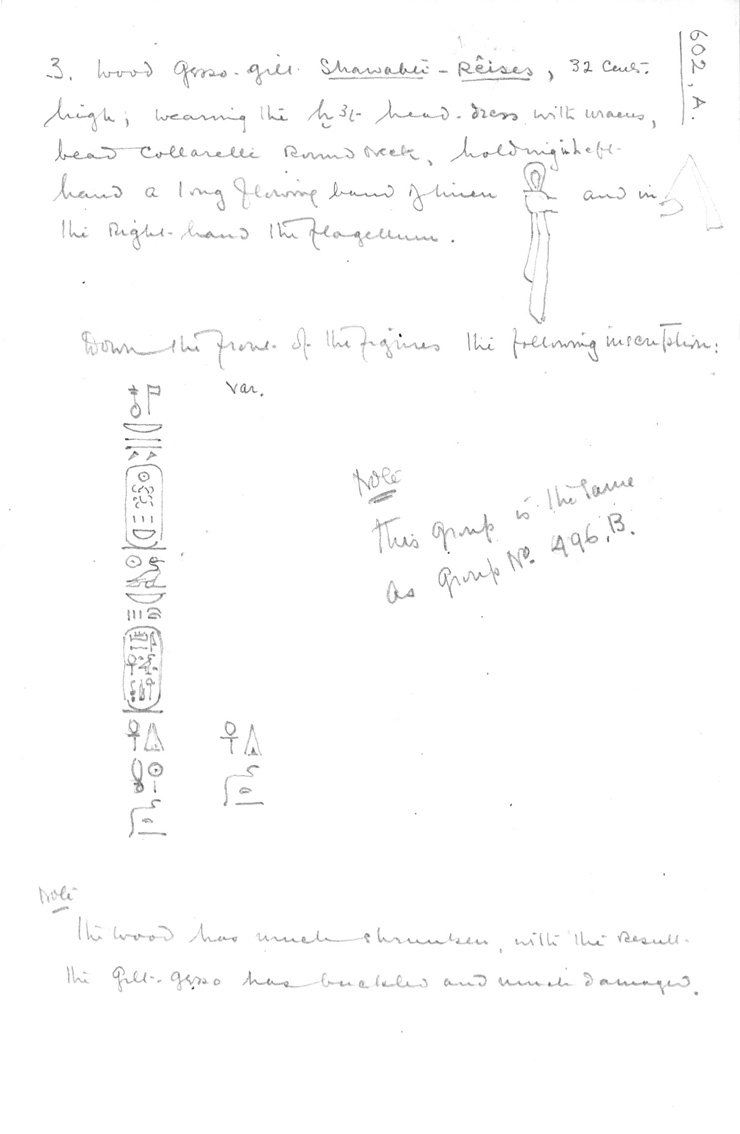 602, A.
3. Wood gesso-gilt Shawabti-Rêises, 32 Cent.
high; wearing the ḫ3t head-dress with uraeus,
bead collarette round neck, holding in left
hand a long flowing band of linen and in
the Right-hand the flagellum.
Down the front of the figures the following inscription:
Var.
Note
This group is the same
as group No. 496, B.
Note
The wood has much shrunken, with the result
the gilt-gesso has buckled and much damaged.